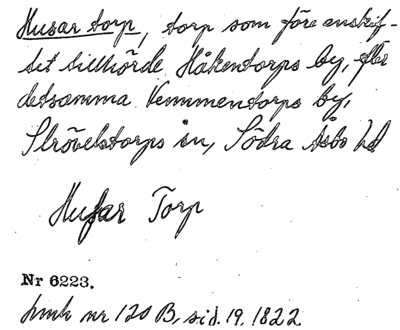 Husar torp, torp som före enskif-
tet tillhörde Håkentorps by, efter
detsamma Vemmentorps by,
Strövelstorps sn, Södra Åsbo hd
Husar Torp
Nr 6223.
lmk nr 120 B, sid. 19, 1822